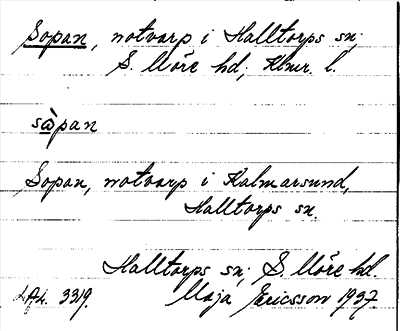 Sopan, notvarp i Halltorps sn;
S. Möre hd, Klmr. l.
sòpan
Sopan, notvarp i Kalmarsund,
Halltorps sn.
Halltorps sn; S. Möre hd.
Maja Ericsson 1937
3319.